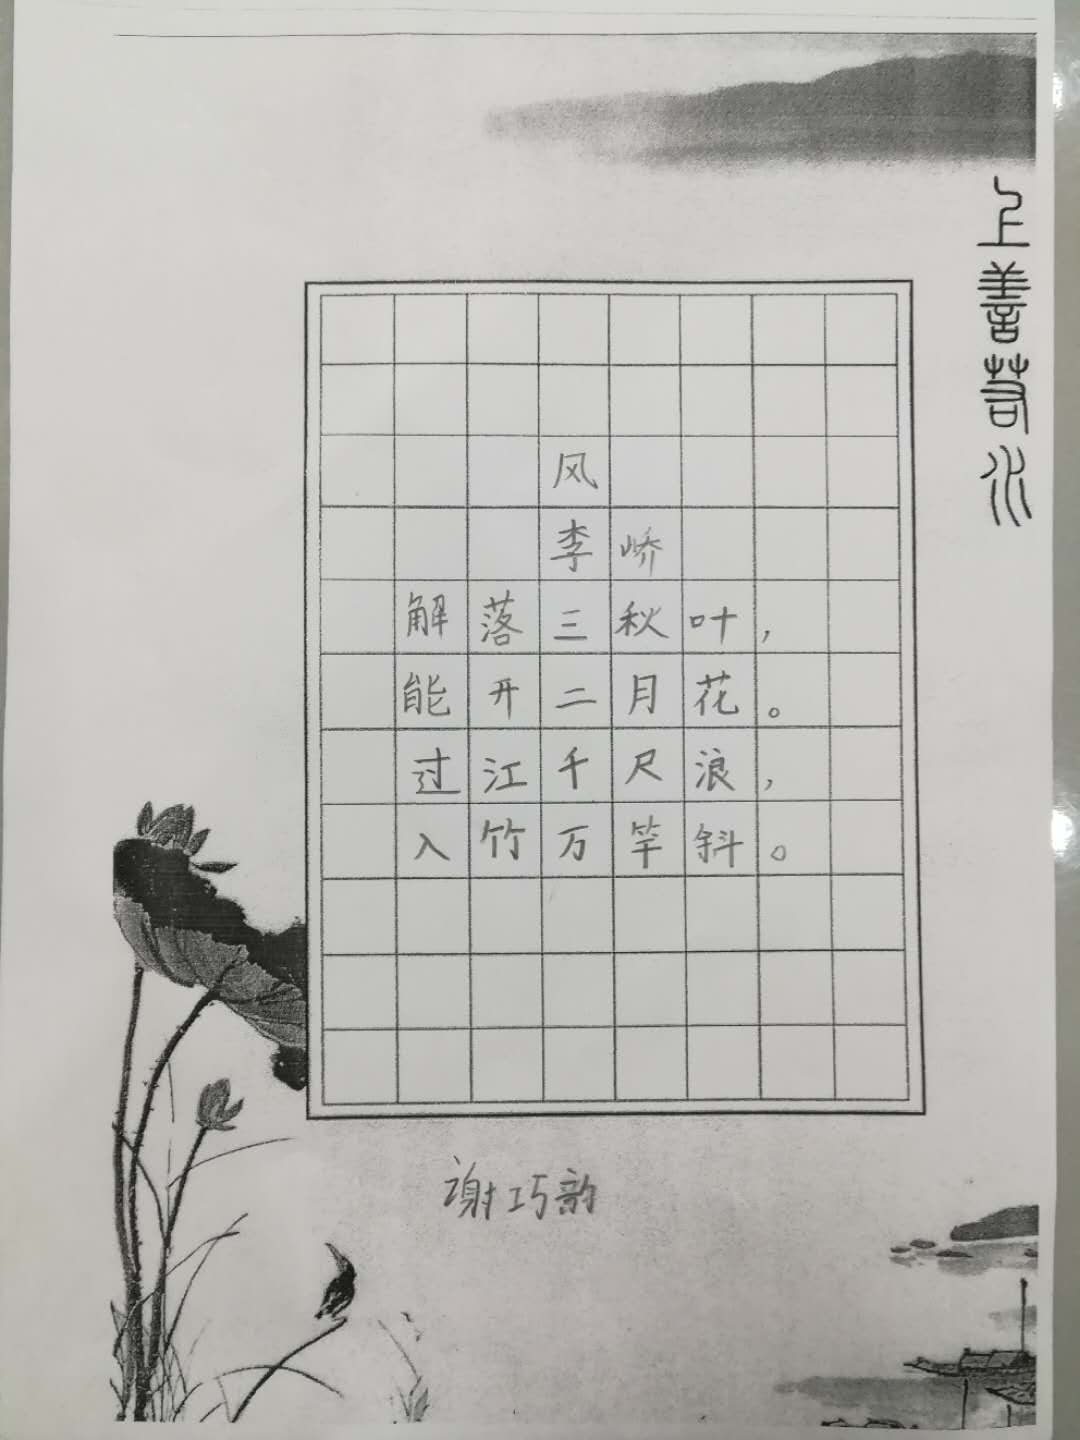 上善若水
风
李峤
解落三秋叶，
能开二月花。
过江千尺浪，
入竹万竿斜。
谢巧韵